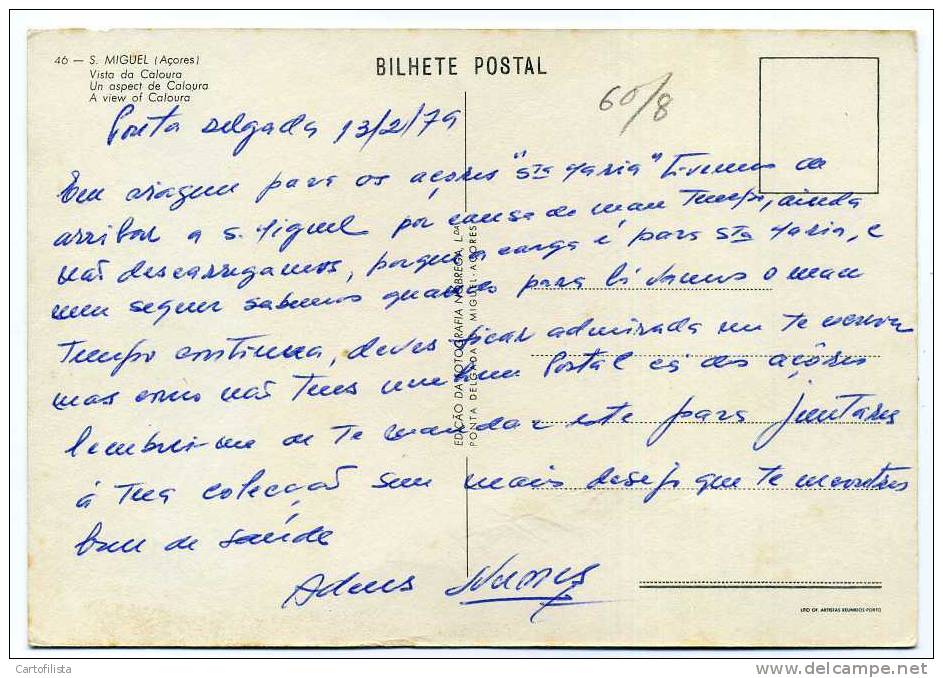 46 — S. MIGUEL (Açores)
Vista da Caloura
Un aspect de Caloura
A view of Caloura
BILHETE POSTAL
60/8
Ponta Delgada 13/2/79
Em viagem para os açores "Sta Maria" tivemos de
arribar a S. Miguel por causa do mau tempo, ainda
não descarregamos, porque a carga é para Sta Maria, e
nem sequer sabemos quando para lá vamos o mau
tempo continua, deves ficar admirada em te escrever
mas como não tens nenhum Postal cá dos açôres
lembrei-me de te mandar este para juntares
á tua colecção sem mais desejo que te encontres
bem de saúde
Adeus Nunes
EDIÇÃO DA FOTOGRAFIA NÓBREGA, LDA.
PONTA DELGADA - S. MIGUEL - AÇORES
LITO OF. ARTISTAS REUNIDOS-PORTO
Cartofilista
www.delcampe.net